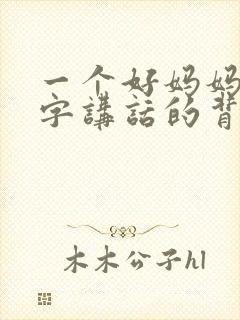 一个好妈妈
字講話的背
木木公子hl